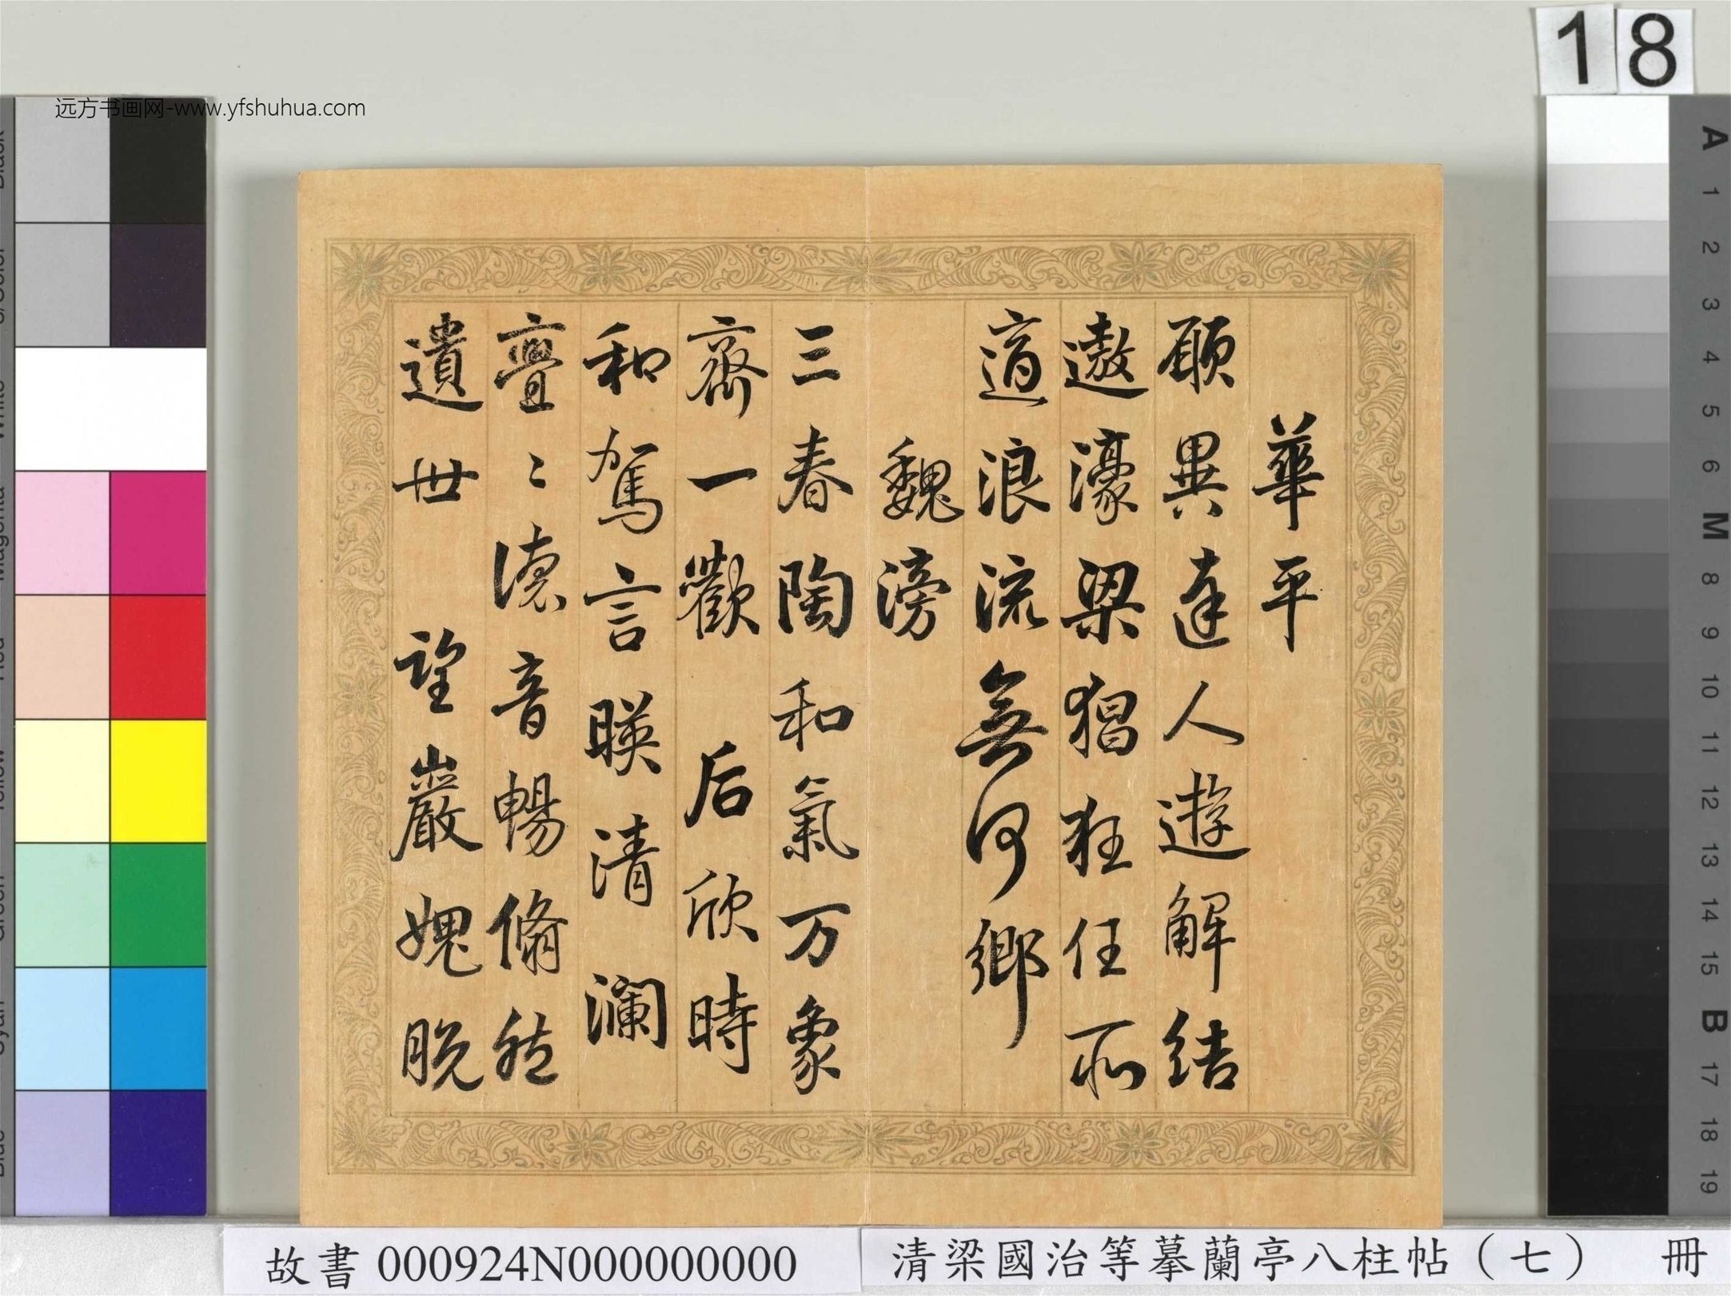 远方书画网-www.yfshuhua.com
18
華平
願異達人遊解結
遨濠梁猖狂任所
適浪流無何鄉
魏滂
三春陶和氣万象
齊一歡 后欣時
和駕言暎清 瀾
亹〻德音暢脩然
遺世 望巖愧脫
故書 000924N000000000
清梁國治等摹蘭亭八柱帖（七） 冊
3/Color
White
Magenta
Red
Yellow
Green
Cyan
Blue
A
1
2
3
4
5
6
M
8
9
10
11
12
13
14
15
B
17
18
19